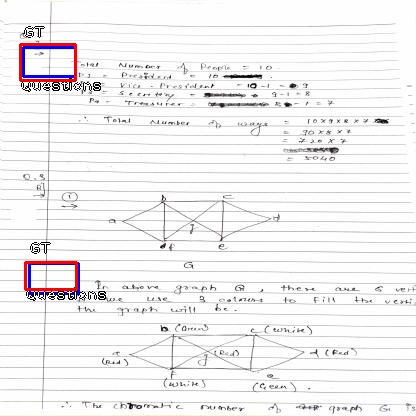 GT
Total Number of People = 10
Questions
P1 - President = 10
Vice - President = 10 - 1 = 9
Secretary = 9-1 = 8
P4 - Treasurer = 8 - 1 = 7
∴ Total Number of ways = 10 x 9 x 8 x 7
= 90 x 8 x 7
= 720 x 7
= 5040
Q.3
(i)
b c
a j d
f e
G
GT
In above graph G, there are 6
Questions
we use 3 colours to fill the
the graph will be.
b (Green) c (White)
a (Red) j (Red) d (Red)
f (White) e (Green).
∴ The chromatic number of graph G is